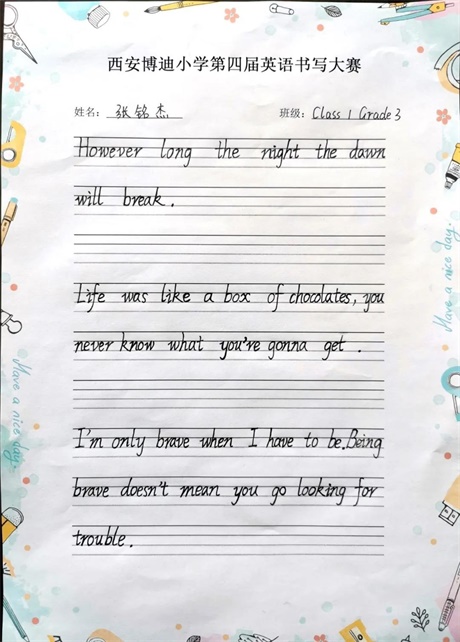 西安博迪小学第四届英语书写大赛
姓名: 张铭杰 班级: Class 1 Grade 3
However long the night the dawn
will break.
Life was like a box of chocolates, you
never know what you're gonna get.
I'm only brave when I have to be.Being
brave doesn't mean you go looking for
trouble.
Have a nice day.
Have a nice day.